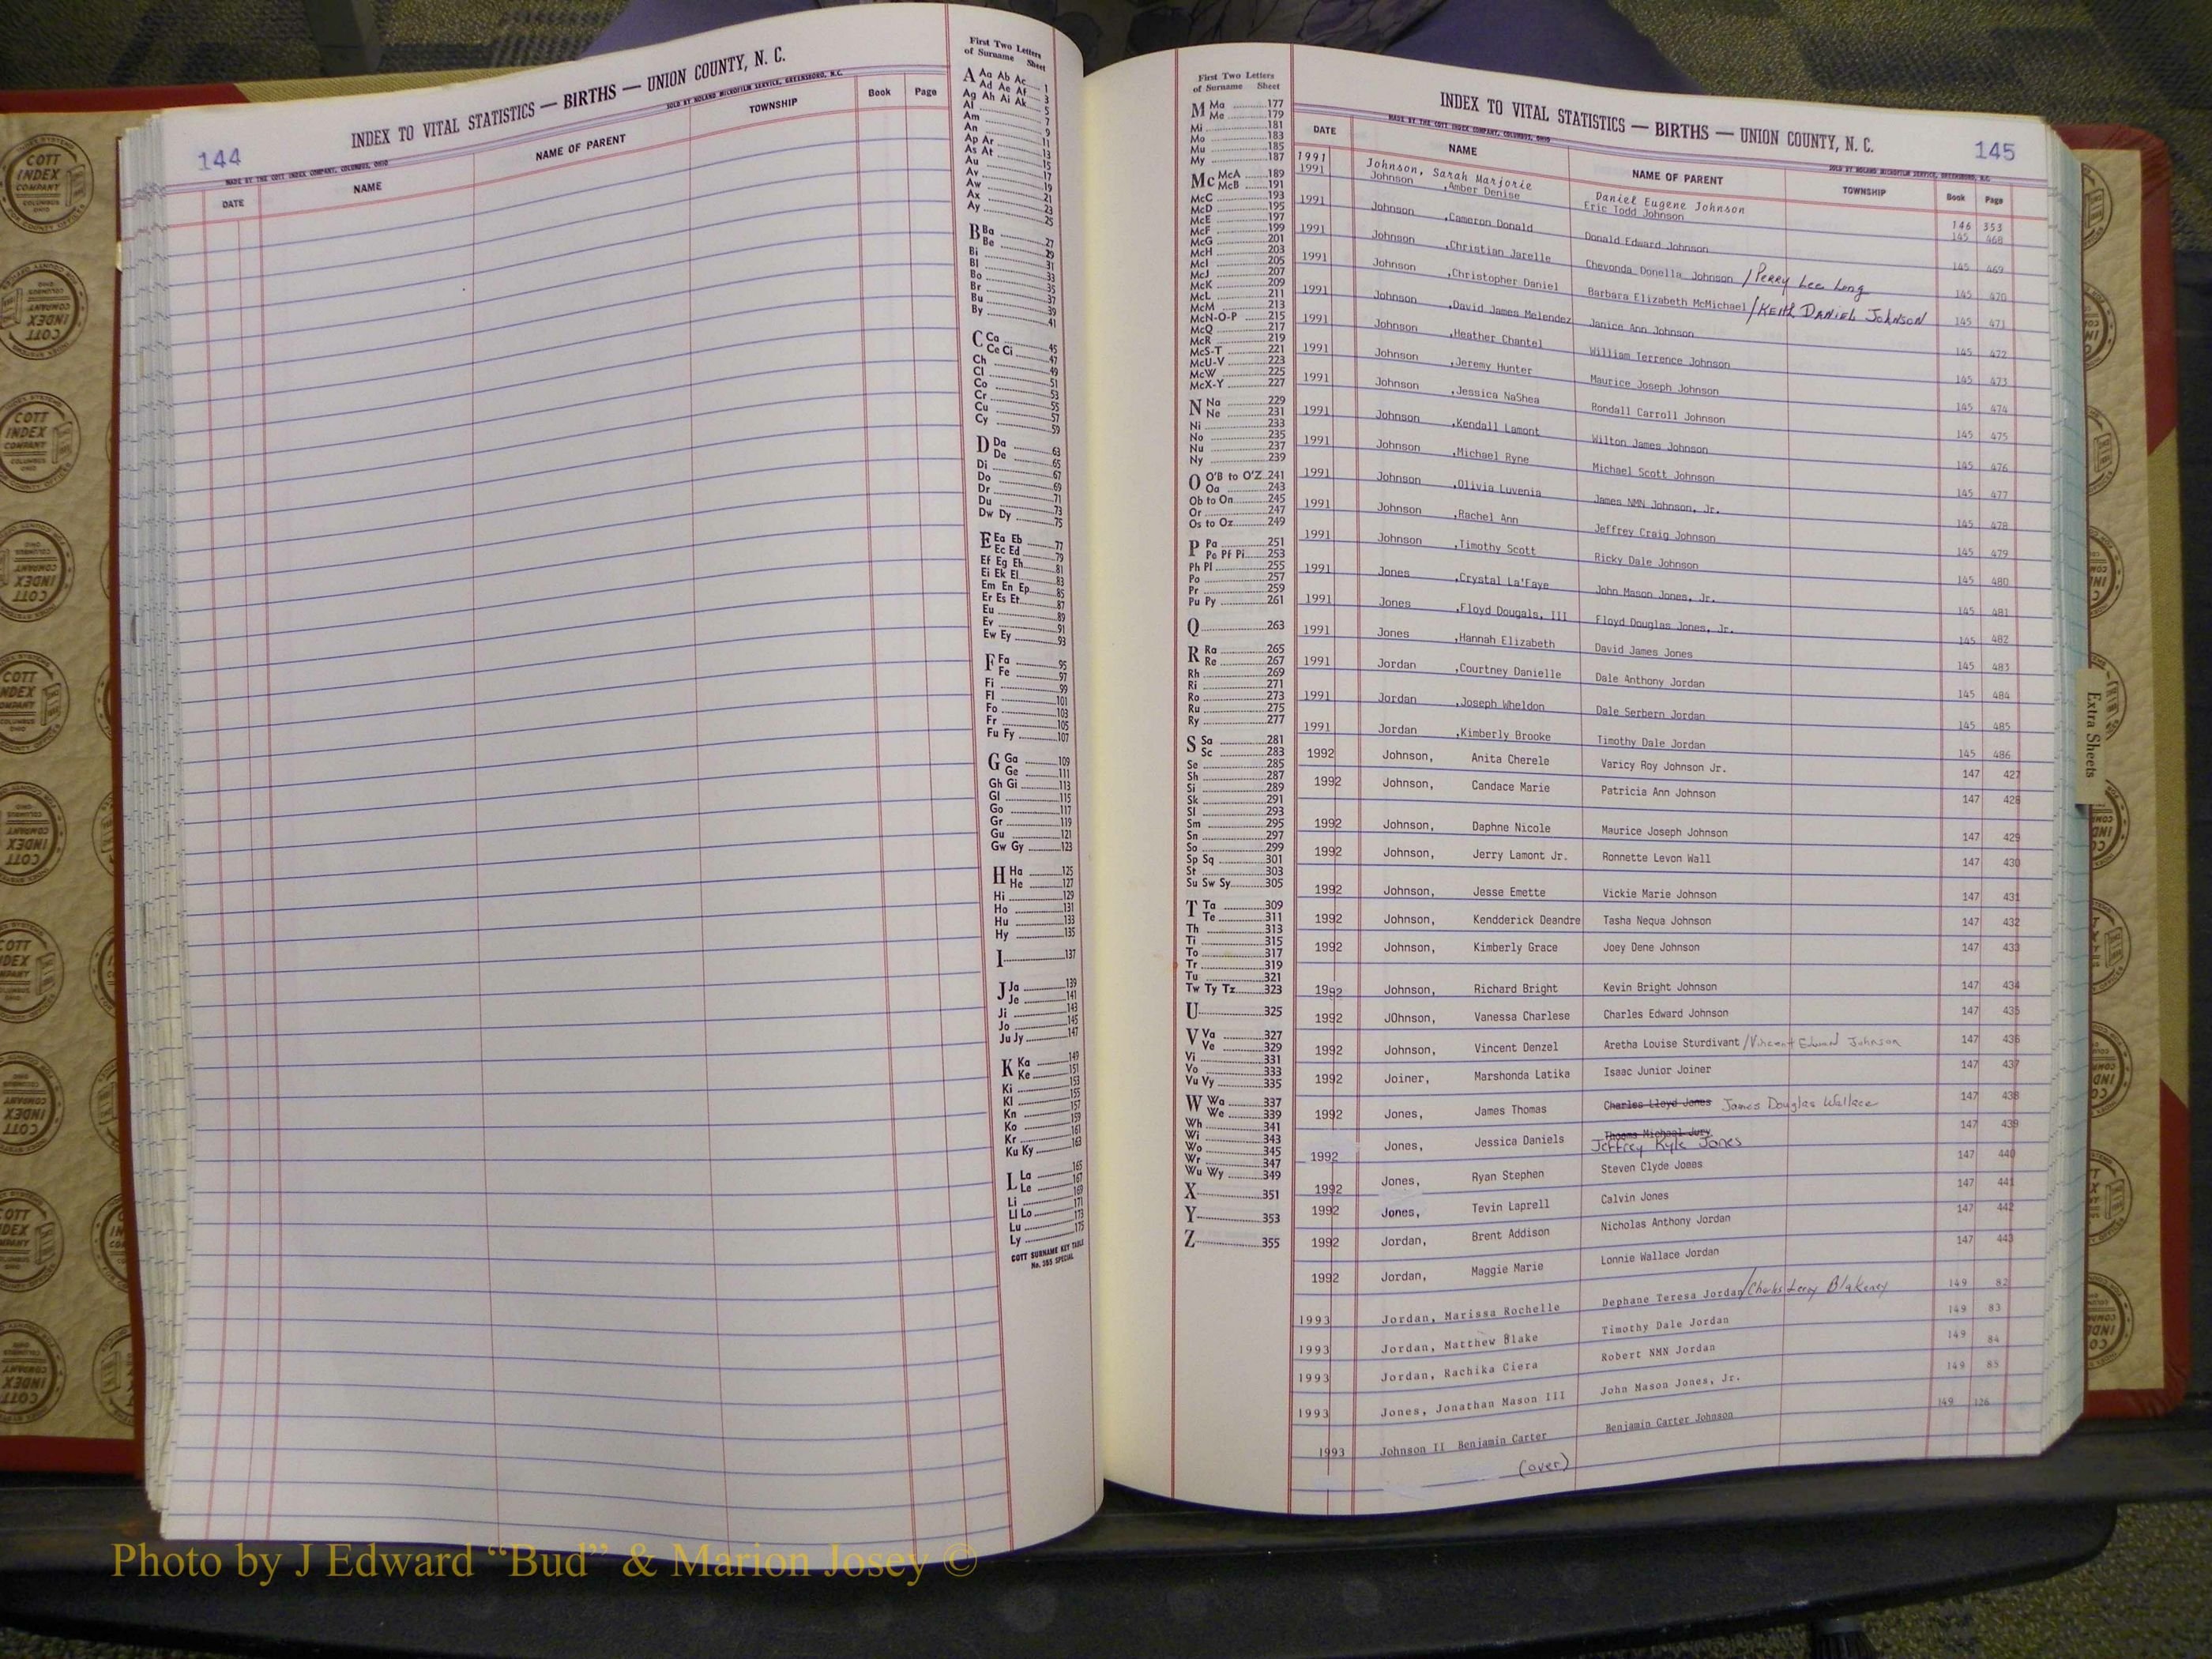 144
INDEX TO VITAL STATISTICS — BIRTHS — UNION COUNTY, N. C.
MADE BY THE COTT INDEX COMPANY, COLUMBUS, OHIO
SOLD BY NOLAND MICROFILM SERVICE, GREENSBORO, N.C.
DATE NAME NAME OF PARENT TOWNSHIP Book Page
First Two Letters
of Surname Sheet
A Aa Ab Ac 1
Ad Ae Af 3
Ag Ah Ai Ak 5
Al 7
Am 9
An 11
Ap Ar 13
As At 15
Au 17
Av 19
Aw 21
Ax 23
Ay 25
B Ba 27
Be 29
Bi 31
Bl 33
Bo 35
Br 37
Bu 39
By 41
C Ca 45
Ce Ci 47
Ch 49
Cl 51
Co 53
Cr 55
Cu 57
Cy 59
D Da 63
De 65
Di 67
Do 69
Dr 71
Du 73
Dw Dy 75
E Ea Eb 77
Ec Ed 79
Ef Eg Eh 81
Ei Ek El 83
Em En Ep 85
Er Es Et 87
Eu 89
Ev 91
Ew Ey 93
F Fa 95
Fe 97
Fi 99
Fl 101
Fo 103
Fr 105
Fu Fy 107
G Ga 109
Ge 111
Gh Gi 113
Gl 115
Go 117
Gr 119
Gu 121
Gw Gy 123
H Ha 125
He 127
Hi 129
Ho 131
Hu 133
Hy 135
I 137
J Ja 139
Je 141
Ji 143
Jo 145
Ju Jy 147
K Ka 149
Ke 151
Ki 153
Kl 155
Kn 157
Ko 159
Kr 161
Ku Ky 163
L La 165
Le 167
Li 169
Ll Lo 171
Lu 173
Ly 175
COTT SURNAME KEY TABLE
No. 355 SPECIAL
First Two Letters
of Surname Sheet
M Ma 177
Me 179
Mi 181
Mo 183
Mu 185
My 187
Mc McA 189
McB 191
McC 193
McD 195
McE 197
McF 199
McG 201
McH 203
McI 205
McJ 207
McK 209
McL 211
McM 213
McN-O-P 215
McQ 217
McR 219
McS-T 221
McU-V 223
McW 225
McX-Y 227
N Na 229
Ne 231
Ni 233
No 235
Nu 237
Ny 239
O O'B to O'Z 241
Oa 243
Ob to On 245
Or 247
Os to Oz 249
P Pa 251
Pe Pf Pi 253
Ph Pl 255
Po 257
Pr 259
Pu Py 261
Q 263
R Ra 265
Re 267
Rh 269
Ri 271
Ro 273
Ru 275
Ry 277
S Sa 281
Sc 283
Se 285
Sh 287
Si 289
Sk 291
Sl 293
Sm 295
Sn 297
So 299
Sp Sq 301
St 303
Su Sw Sy 305
T Ta 309
Te 311
Th 313
Ti 315
To 317
Tr 319
Tu 321
Tw Ty Tz 323
U 325
V Va 327
Ve 329
Vi 331
Vo 333
Vu Vy 335
W Wa 337
We 339
Wh 341
Wi 343
Wo 345
Wr 347
Wu Wy 349
X 351
Y 353
Z 355
INDEX TO VITAL STATISTICS — BIRTHS — UNION COUNTY, N. C.
145
MADE BY THE COTT INDEX COMPANY, COLUMBUS, OHIO
SOLD BY NOLAND MICROFILM SERVICE, GREENSBORO, N.C.
DATE NAME NAME OF PARENT TOWNSHIP Book Page
1991 Johnson, Sarah Marjorie Daniel Eugene Johnson 146 353
1991 Johnson ,Amber Denise Eric Todd Johnson 145 468
1991 Johnson ,Cameron Donald Donald Edward Johnson 145 469
1991 Johnson ,Christian Jarelle Chevonda Donella Johnson / Perry Lee Long 145 470
1991 Johnson ,Christopher Daniel Barbara Elizabeth McMichael / KEITH DANIEL JOHNSON 145 471
1991 Johnson ,David James Melendez Janice Ann Johnson 145 472
1991 Johnson ,Heather Chantel William Terrence Johnson 145 473
1991 Johnson ,Jeremy Hunter Maurice Joseph Johnson 145 474
1991 Johnson ,Jessica NaShea Rondall Carroll Johnson 145 475
1991 Johnson ,Kendall Lamont Wilton James Johnson 145 476
1991 Johnson ,Michael Ryne Michael Scott Johnson 145 477
1991 Johnson ,Olivia Luvenia James NMN Johnson, Jr. 145 478
1991 Johnson ,Rachel Ann Jeffrey Craig Johnson 145 479
1991 Johnson ,Timothy Scott Ricky Dale Johnson 145 480
1991 Jones ,Crystal La'Faye John Mason Jones, Jr. 145 481
1991 Jones ,Floyd Dougals, III Floyd Douglas Jones, Jr. 145 482
1991 Jones ,Hannah Elizabeth David James Jones 145 483
1991 Jordan ,Courtney Danielle Dale Anthony Jordan 145 484
1991 Jordan ,Joseph Wheldon Dale Serbern Jordan 145 485
1991 Jordan ,Kimberly Brooke Timothy Dale Jordan 145 486
1992 Johnson, Anita Cherele Varicy Roy Johnson Jr. 147 427
1992 Johnson, Candace Marie Patricia Ann Johnson 147 428
1992 Johnson, Daphne Nicole Maurice Joseph Johnson 147 429
1992 Johnson, Jerry Lamont Jr. Ronnette Levon Wall 147 430
1992 Johnson, Jesse Emette Vickie Marie Johnson 147 431
1992 Johnson, Kendderick Deandre Tasha Nequa Johnson 147 432
1992 Johnson, Kimberly Grace Joey Dene Johnson 147 433
1992 Johnson, Richard Bright Kevin Bright Johnson 147 434
1992 JOhnson, Vanessa Charlese Charles Edward Johnson 147 435
1992 Johnson, Vincent Denzel Aretha Louise Sturdivant / Vincent Edward Johnson 147 436
1992 Joiner, Marshonda Latika Isaac Junior Joiner 147 437
1992 Jones, James Thomas Charles Lloyd Jones James Douglas Wallace 147 438
1992 Jones, Jessica Daniels Thoams Michael Jury Jeffrey Kyle Jones 147 439
1992 Jones, Ryan Stephen Steven Clyde Jones 147 440
1992 Jones, Tevin Laprell Calvin Jones 147 441
1992 Jordan, Brent Addison Nicholas Anthony Jordan 147 442
1992 Jordan, Maggie Marie Lonnie Wallace Jordan 147 443
1993 Jordan, Marissa Rochelle Dephane Teresa Jordan / Charles Leroy Blakeney 149 82
1993 Jordan, Matthew Blake Timothy Dale Jordan 149 83
1993 Jordan, Rachika Ciera Robert NMN Jordan 149 84
1993 Jones, Jonathan Mason III John Mason Jones, Jr. 149 85
1993 Johnson II Benjamin Carter Benjamin Carter Johnson 149 126
(over)
Extra Sheets
COTT INDEX COMPANY
Photo by J Edward “Bud” & Marion Josey ©